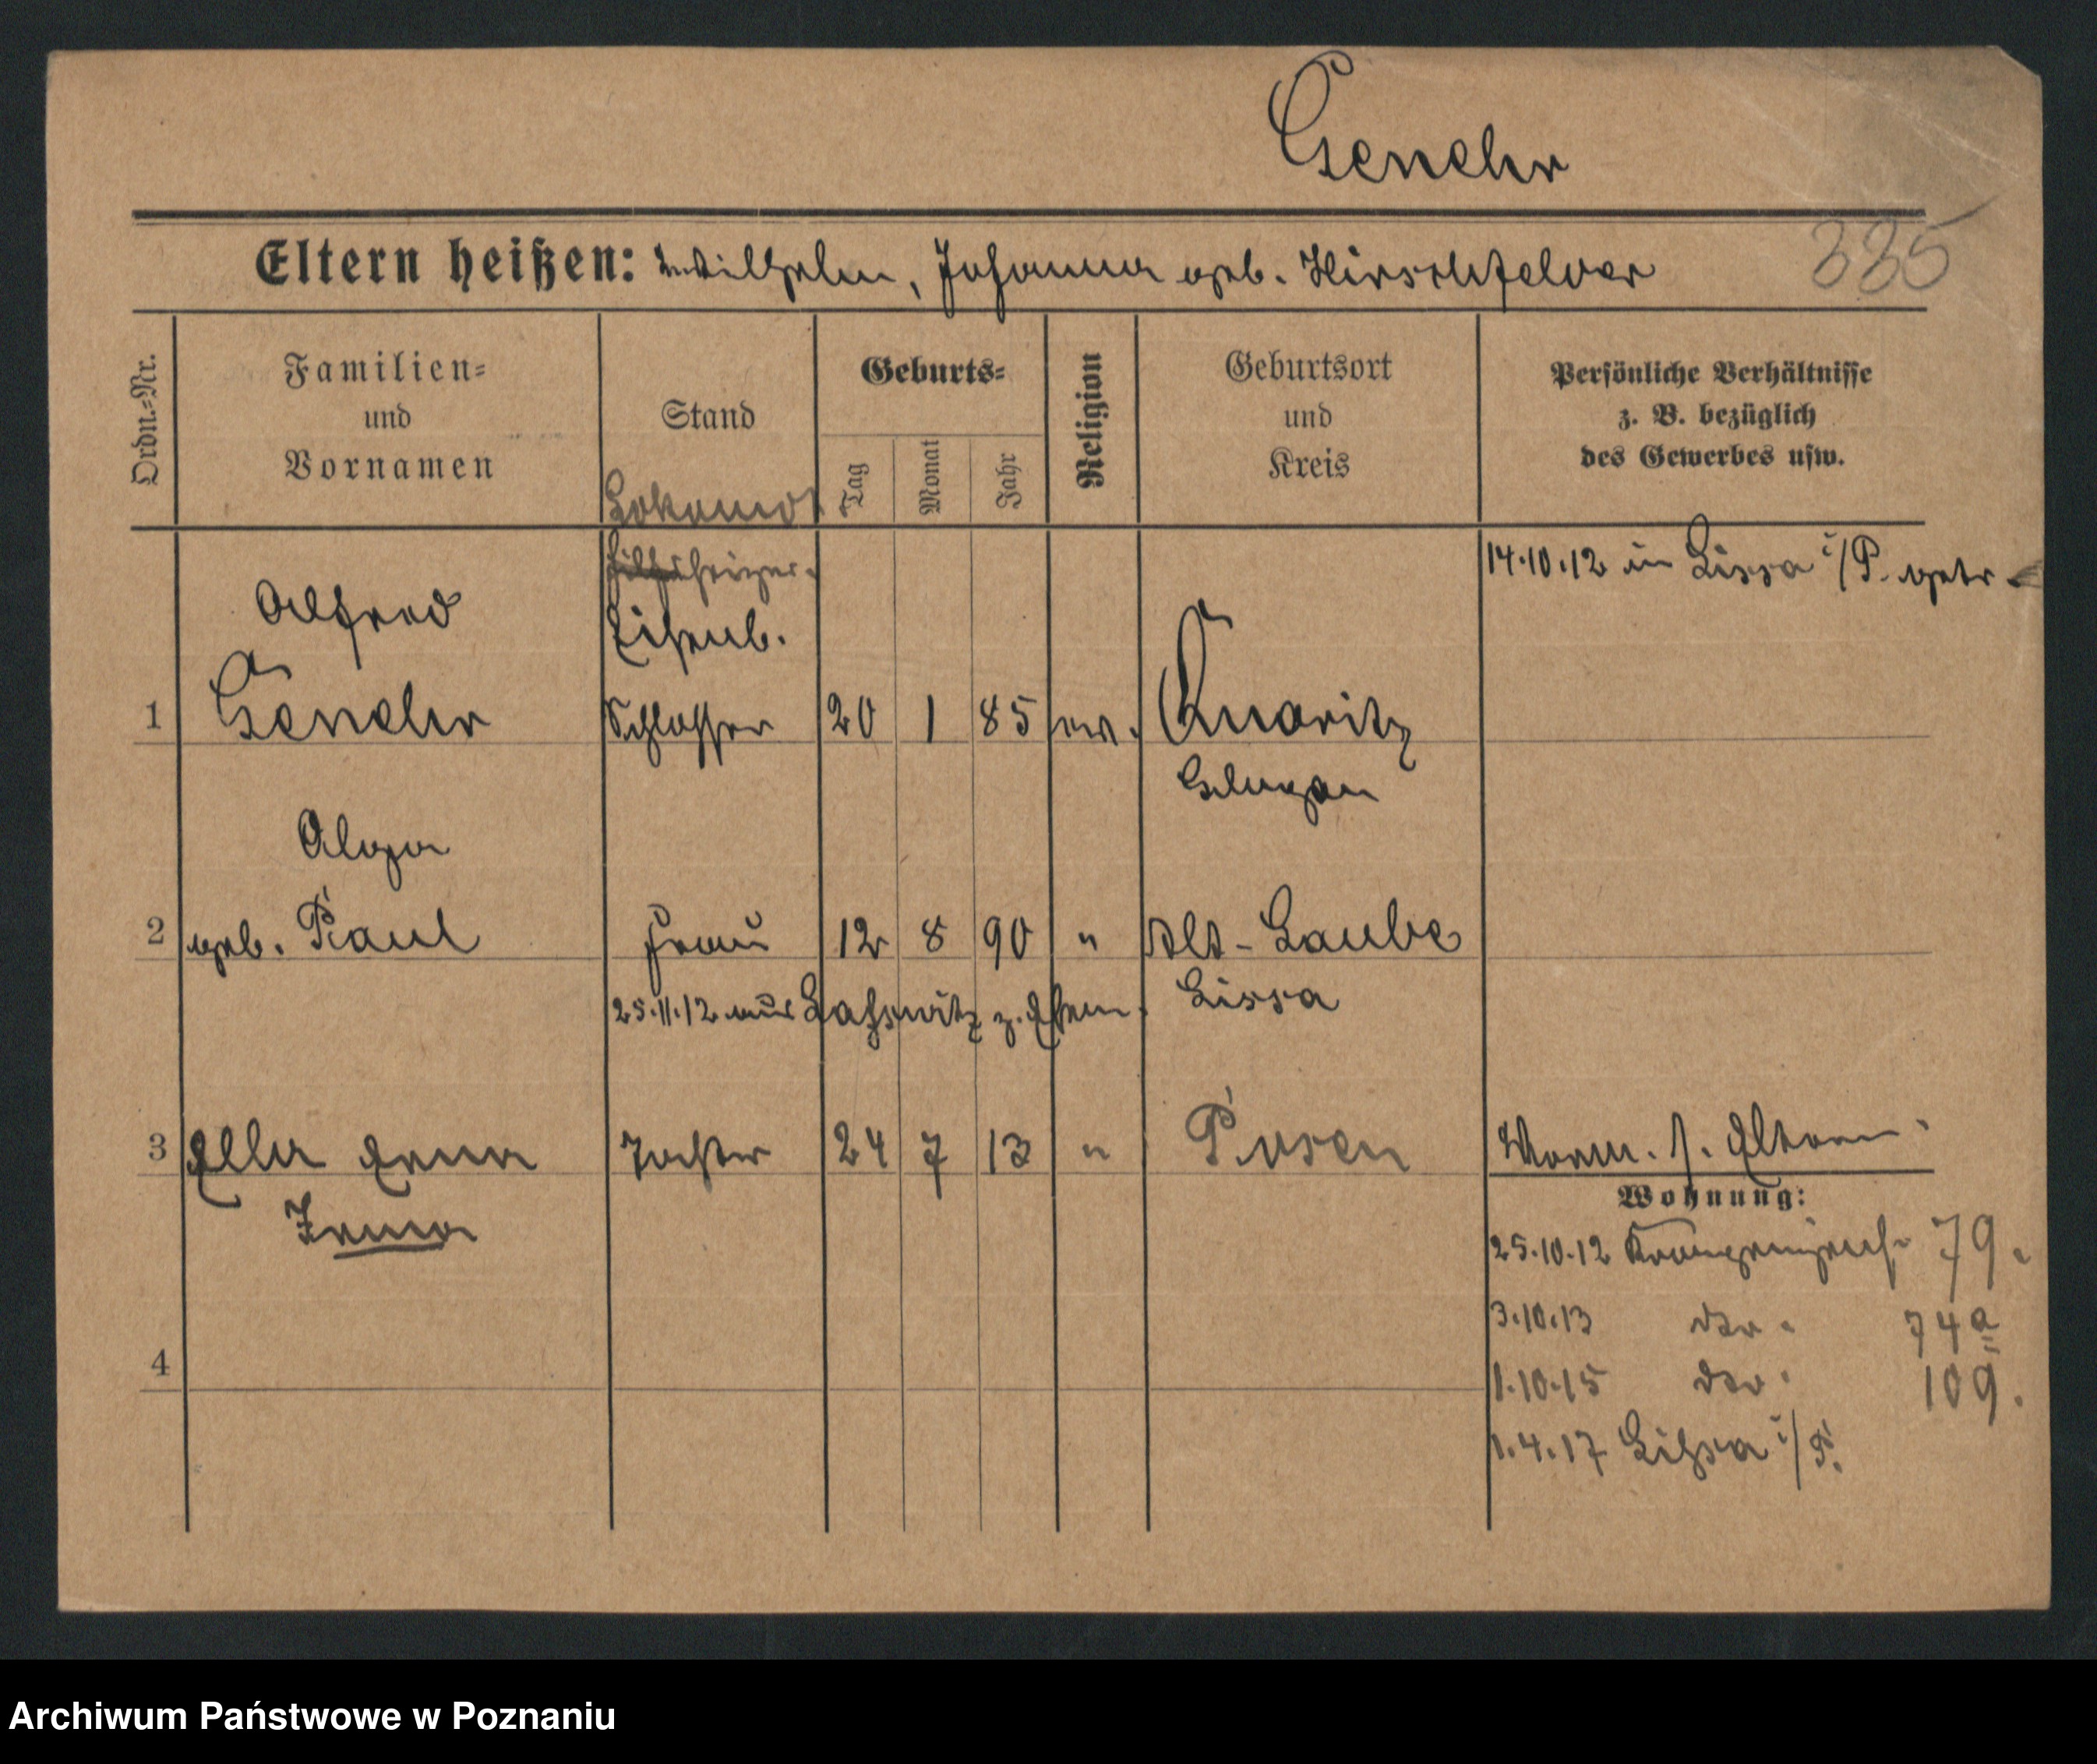 Genehr
Eltern heißen: Wilhelm, Johanna geb. Hirschfelder
335
Ordn.=Nr.
Familien=
und
Vornamen
Stand
Geburts=
Tag
Monat
Jahr
Religion
Geburtsort
und
Kreis
Persönliche Verhältnisse
z. B. bezüglich
des Gewerbes usw.
Lokomo
hilfsheizer.
14.10.12 in Lissa i/P. getr.
Alfred
Eisenb.
1 Genehr Schlosser 20 1 85 ev. Quaritz
Glogau
Olga
2 geb. Paul Frau 12 8 90 " Alt-Laube
25.11.12 aus Laßwitz z. Ehem. Lissa
3 Ella Erna Tochter 24 7 13 " Posen Worm. s. Eltern.
Irma
Wohnung:
25.10.12 79.
3.10.13 der. 74a
4
1.10.15 der. 109.
1.4.17 Lissa i/P.
Archiwum Państwowe w Poznaniu